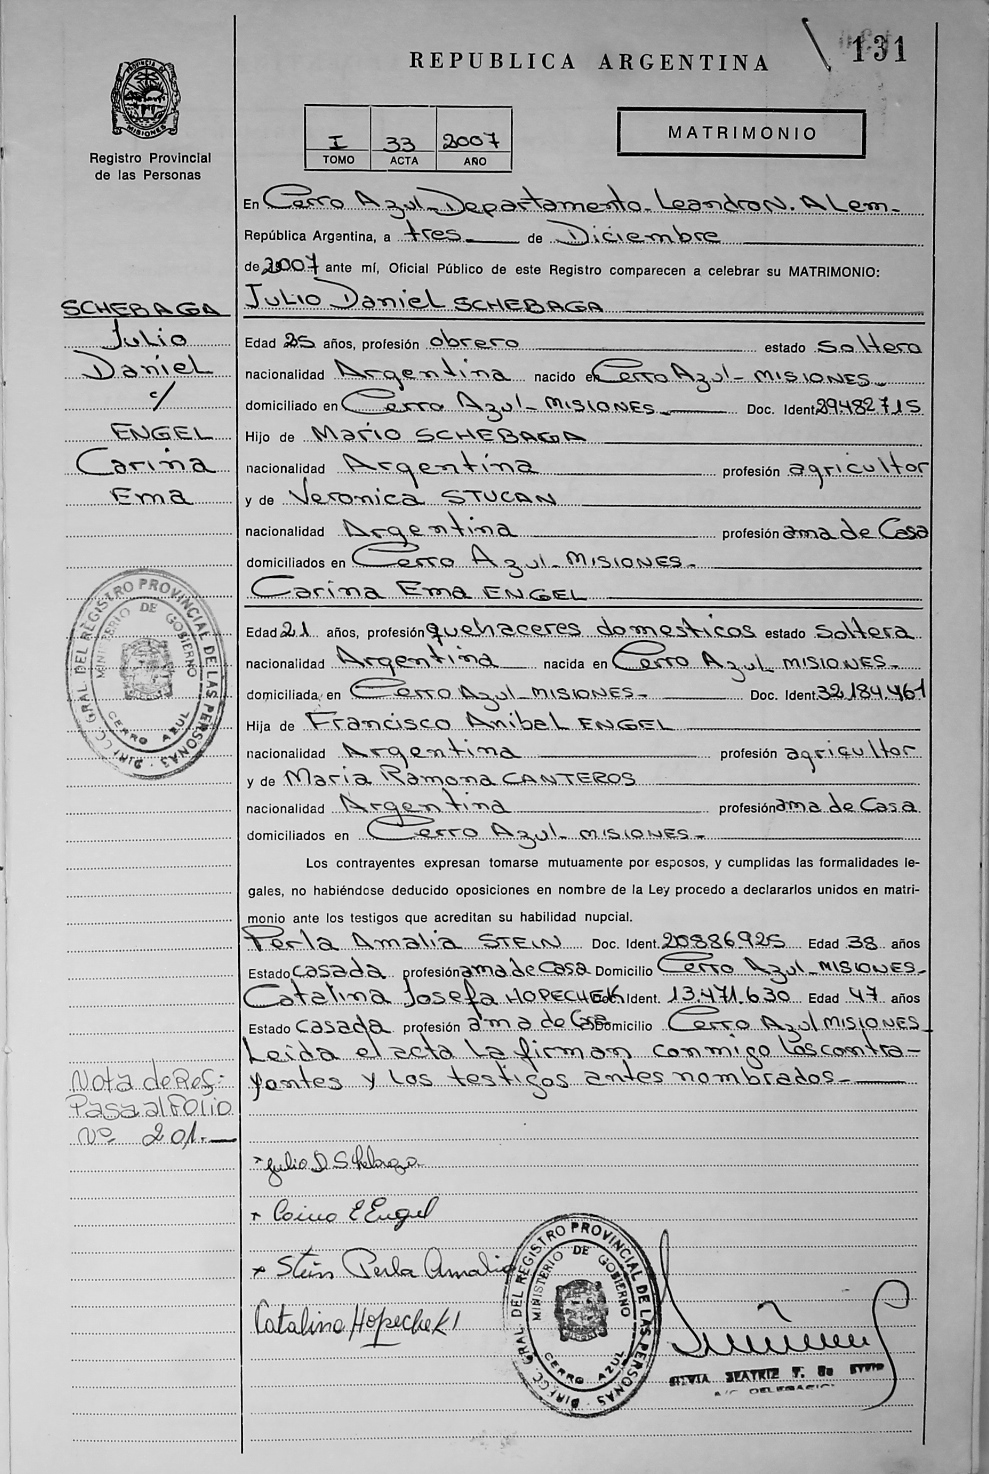 131
REPUBLICA ARGENTINA
PROVINCIA DE
MISIONES
Registro Provincial
de las Personas
I 33 2007
TOMO ACTA AÑO
MATRIMONIO
En Cerro Azul - Departamento - Leandro N. Alem -
República Argentina, a tres de Diciembre
de 2007 ante mí, Oficial Público de este Registro comparecen a celebrar su MATRIMONIO:
JULIO Daniel SCHEBAGA
SCHEBAGA
Julio
Daniel
c/
ENGEL
Carina
Ema
Edad 25 años, profesión obrero estado soltero
nacionalidad Argentina nacido en Cerro Azul - MISIONES -
domiciliado en Cerro Azul - MISIONES - Doc. Ident. 29482715
Hijo de Mario SCHEBAGA
nacionalidad Argentina profesión agricultor
y de Veronica STUCAN
nacionalidad Argentina profesión ama de Casa
domiciliados en Cerro Azul - MISIONES -
Carina Ema ENGEL
Edad 21 años, profesión quehaceres domesticos estado Soltera
nacionalidad Argentina nacida en Cerro Azul MISIONES -
domiciliada en Cerro Azul - MISIONES - Doc. Ident. 32.184.461
Hija de Francisco Anibal ENGEL
nacionalidad Argentina profesión agricultor
y de Maria Ramona CANTEROS
nacionalidad Argentina profesión ama de Casa
domiciliados en Cerro Azul - MISIONES -
Los contrayentes expresan tomarse mutuamente por esposos, y cumplidas las formalidades le-
gales, no habiéndose deducido oposiciones en nombre de la Ley procedo a declararlos unidos en matri-
monio ante los testigos que acreditan su habilidad nupcial.
Perla Amalia STEIN Doc. Ident. 20886925 Edad 38 años
Estado casada profesión ama de Casa Domicilio Cerro Azul - MISIONES -
Catalina Josefa HOPECHEK Doc. Ident. 13.471.630 Edad 47 años
Estado casada profesión ama de Casa Domicilio Cerro Azul MISIONES
Leida el acta la firman conmigo los contra-
yentes y los testigos antes nombrados -
Nota de Ref:
Pasa al Folio
Nº 201.-
DIRECC. GRAL. DEL REGISTRO PROVINCIAL DE LAS PERSONAS
MINISTERIO DE GOBIERNO
CERRO AZUL
Julio D Schebaga
Carina E Engel
Stein Perla Amalia
Catalina Hopechek
DIRECC. GRAL. DEL REGISTRO PROVINCIAL DE LAS PERSONAS
MINISTERIO DE GOBIERNO
CERRO AZUL
SILVIA BEATRIZ
A/C DELEGACION